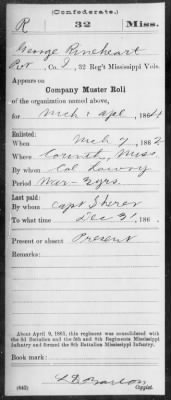 (Confederate.)
R 32 Miss.
George Rineheart
Pvt, Co. I, 32 Reg't Mississippi Vols.
Appears on
Company Muster Roll
of the organization named above,
for Mch & Apl, 1864
Enlisted:
When Mch 7, 1862
Where Corinth, Miss
By whom Col Lowry
Period War-3yrs.
Last paid:
By whom Capt Sherer
To what time Dec 31, 186
Present or absent Present
Remarks:
About April 9, 1865, this regiment was consolidated with
the 3d Battalion and the 5th and 8th Regiments Mississippi
Infantry and formed the 8th Battalion Mississippi Infantry.
Book mark:
(642) Copyist.